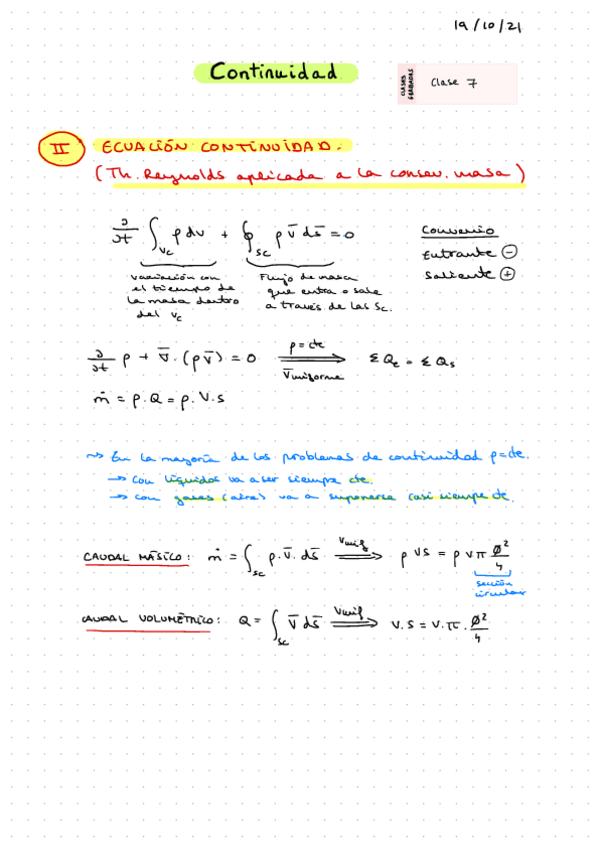 19/10/21
Continuidad
CLASES GRABADAS
Clase 7
II ECUACIÓN CONTINUIDAD.
(Th. Reynolds aplicada a la conserv. masa)
∂/∂t ∫_VC ρ dv + ∮_SC ρ v̄ ds̄ = 0
Convenio
Entrante ⊖
Saliente ⊕
variación con
el tiempo de
la masa dentro
del Vc
Flujo de masa
que entra o sale
a través de las Sc.
∂/∂t ρ + ∇̄ · (ρ v̄) = 0 ⟹ ρ = cte V̄ uniforme Σ Qe = Σ Qs
ṁ = ρ.Q = ρ.V.S
~> En la mayoría de los problemas de continuidad ρ=cte.
→ Con líquidos va a ser siempre cte.
→ con gases (aire) va a suponerse casi siempre cte.
CAUDAL MÁSICO: ṁ = ∫_SC ρ.v̄.ds̄ ⟹ Vunif ρVS = ρVπ Ø²/4
sección
circular
CAUDAL VOLUMÉTRICO: Q = ∫_SC v̄ ds̄ ⟹ Vunif V.S = V.π.Ø²/4